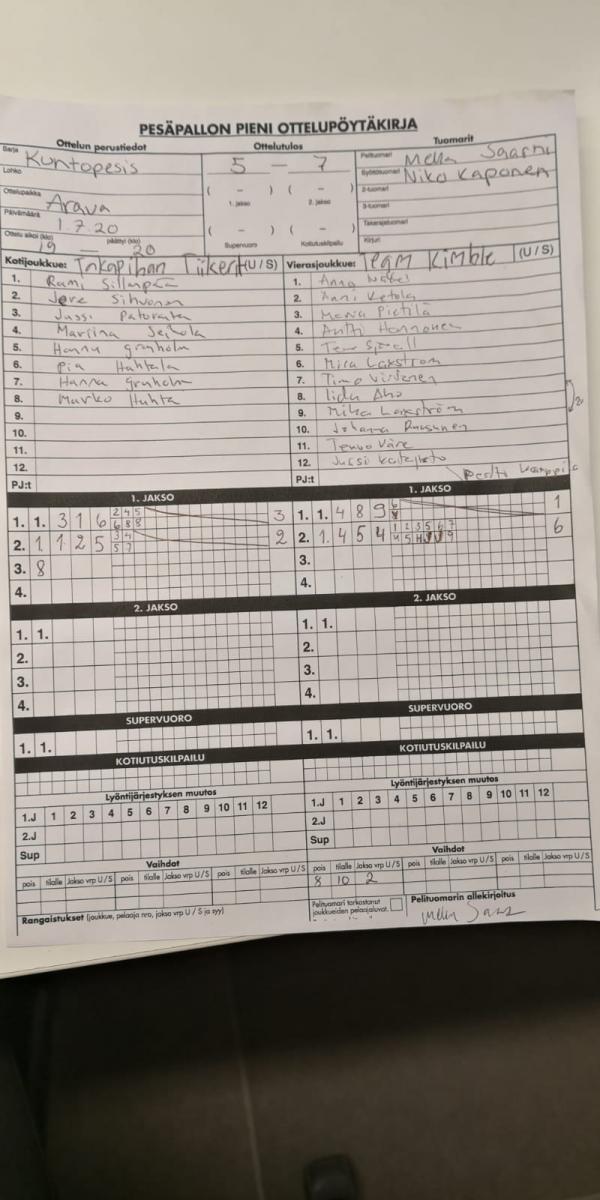 PESÄPALLON PIENI OTTELUPÖYTÄKIRJA
Ottelun perustiedot Ottelutulos Tuomarit
Sarja Kuntopesis 5 – 7 Pelituomari Mella Saarni
Lohko Syöttötuomari Niko Kaponen
( – ) ( – ) 2-tuomari
Ottelupaikka Arava 1. jakso 2. jakso 3-tuomari
Päivämäärä 1.7.20 ( – ) ( – ) Takarajatuomari
Ottelu alkoi (klo) 19 päättyi (klo) 20 Supervuoro Kotiutuskilpailu Kirjuri
Kotijoukkue: Tiikerit (U / S) Vierasjoukkue: Team Kimble (U / S)
1. Rami Sillanpää 1. Anna
2. Jere Sihvonen 2. Anni Ketola
3. Jussi 3. Merva Pietilä
4. 4. Antti Hannonen
5. Hannu Granholm 5.
6. Pia Huhtala 6. Mira Laxstrom
7. Hanna Granholm 7. Timo Virtanen
8. Marko Huhta 8. Iida Aho
9. 9. Mika Laxström
10. 10. Johanna
11. 11. Teuvo Väre
12. 12. Jussi
PJ:t PJ:t Pertti
1. JAKSO 1. JAKSO
1. 1. 3 1 6 2 4 5 6 8 8 3 1. 1. 4 8 9 1
2. 1 1 2 5 3 4 5 7 2 2. 1. 4 5 4 1 2 3 5 6 7 6
3. 8 3.
4. 4.
2. JAKSO 2. JAKSO
1. 1. 1. 1.
2. 2.
3. 3.
4. 4.
SUPERVUORO SUPERVUORO
1. 1. 1. 1.
KOTIUTUSKILPAILU KOTIUTUSKILPAILU
Lyöntijärjestyksen muutos Lyöntijärjestyksen muutos
1.J 1 2 3 4 5 6 7 8 9 10 11 12 1.J 1 2 3 4 5 6 7 8 9 10 11 12
2.J 2.J
Sup Sup
Vaihdot Vaihdot
pois tilalle Jakso vrp U / S pois tilalle Jakso vrp U / S pois tilalle Jakso vrp U / S pois tilalle Jakso vrp U / S pois tilalle Jakso vrp U / S pois tilalle Jakso vrp U / S
8 10 2
Rangaistukset (joukkue, pelaaja nro, jakso vrp U / S ja syy) Pelituomari tarkastanut Pelituomarin allekirjoitus
joukkueiden pelaajaluvat.